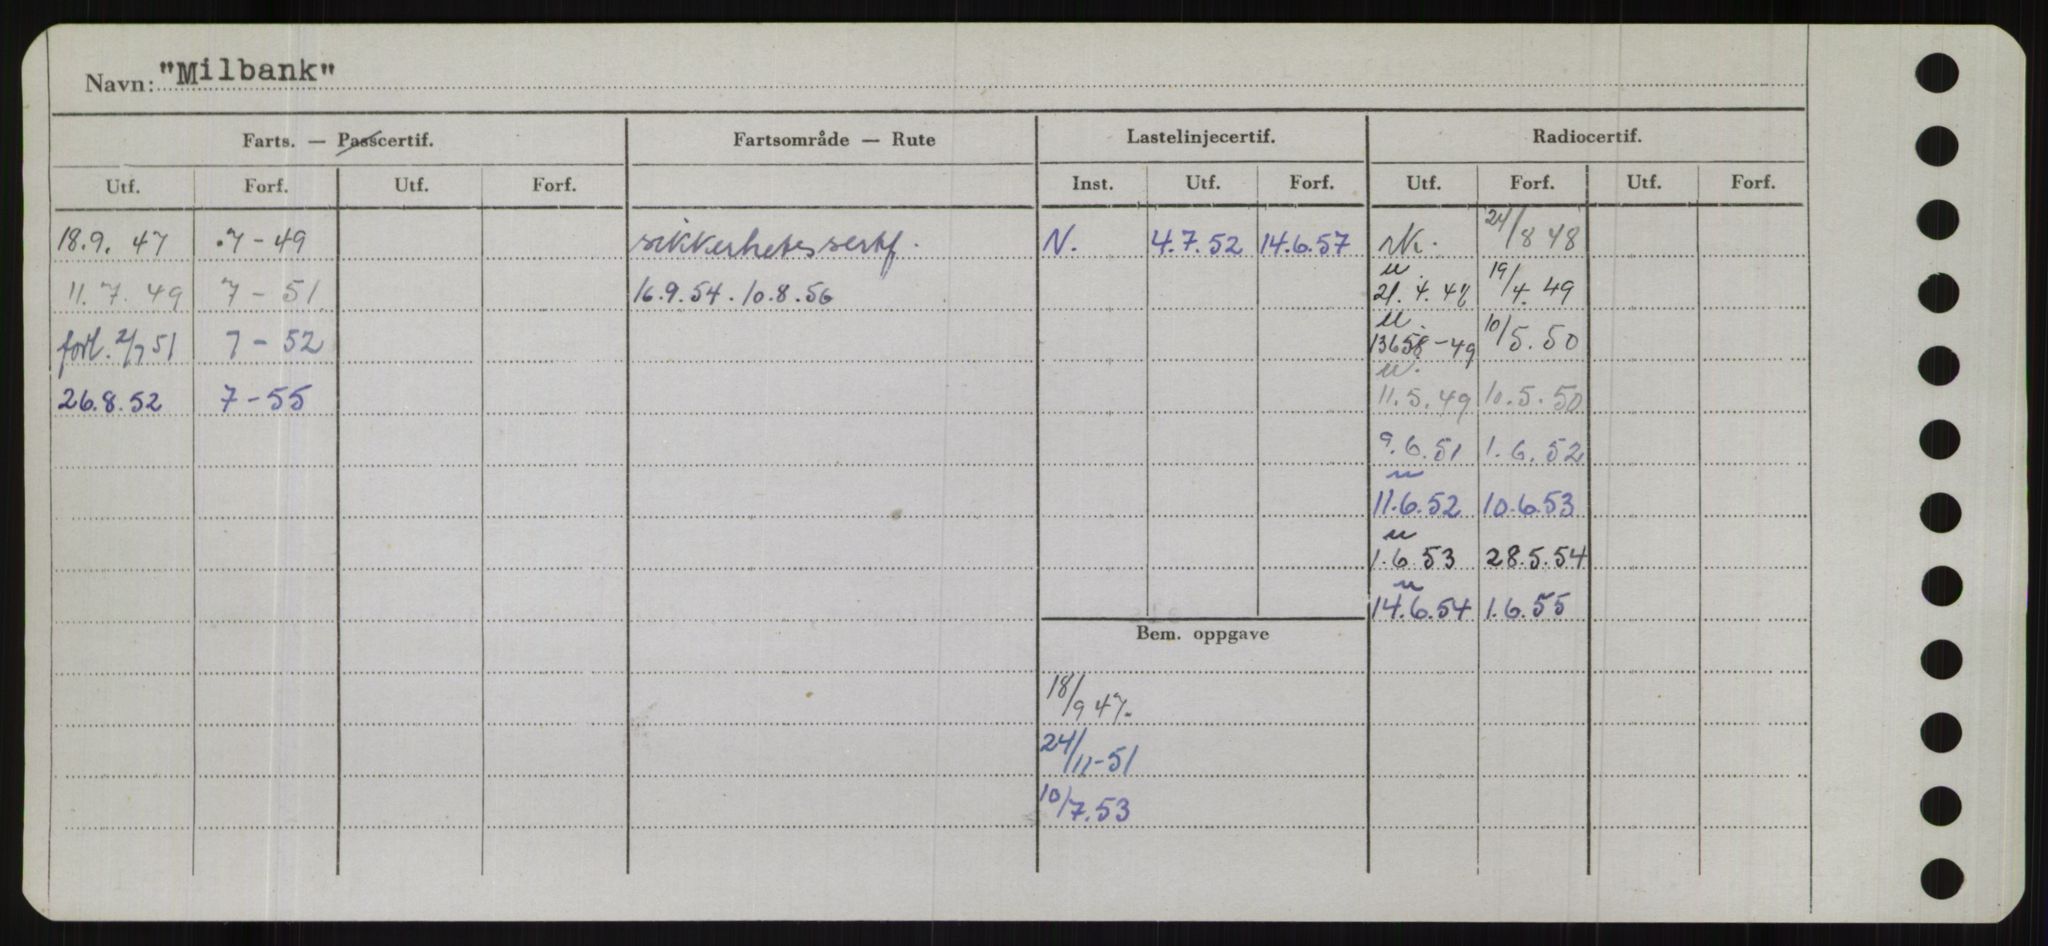 Navn: "Milbank"
Farts. — Passcertif. Fartsområde — Rute Lastelinjecertif. Radiocertif.
Utf. Forf. Utf. Forf. Inst. Utf. Forf. Utf. Forf. Utf. Forf.
18.9. 47 .7 - 49 sikkerhetssertf. N. 4.7.52 14.6.57 24/8 48
11. 7. 49 7 - 51 16.9.54 . 10.8.56 21. 4. 48 19/4. 49
forl. 2/7 51 7 - 52 13658 - 49 10/5.50
26.8.52 7 - 55 11.5.49 10.5.50
9.6.51 1.6.52
11.6.52 10.6.53
1.6.53 28.5.54
14.6.54 1.6.55
Bem. oppgave
18/9 47.
24/11-51
10/7.53